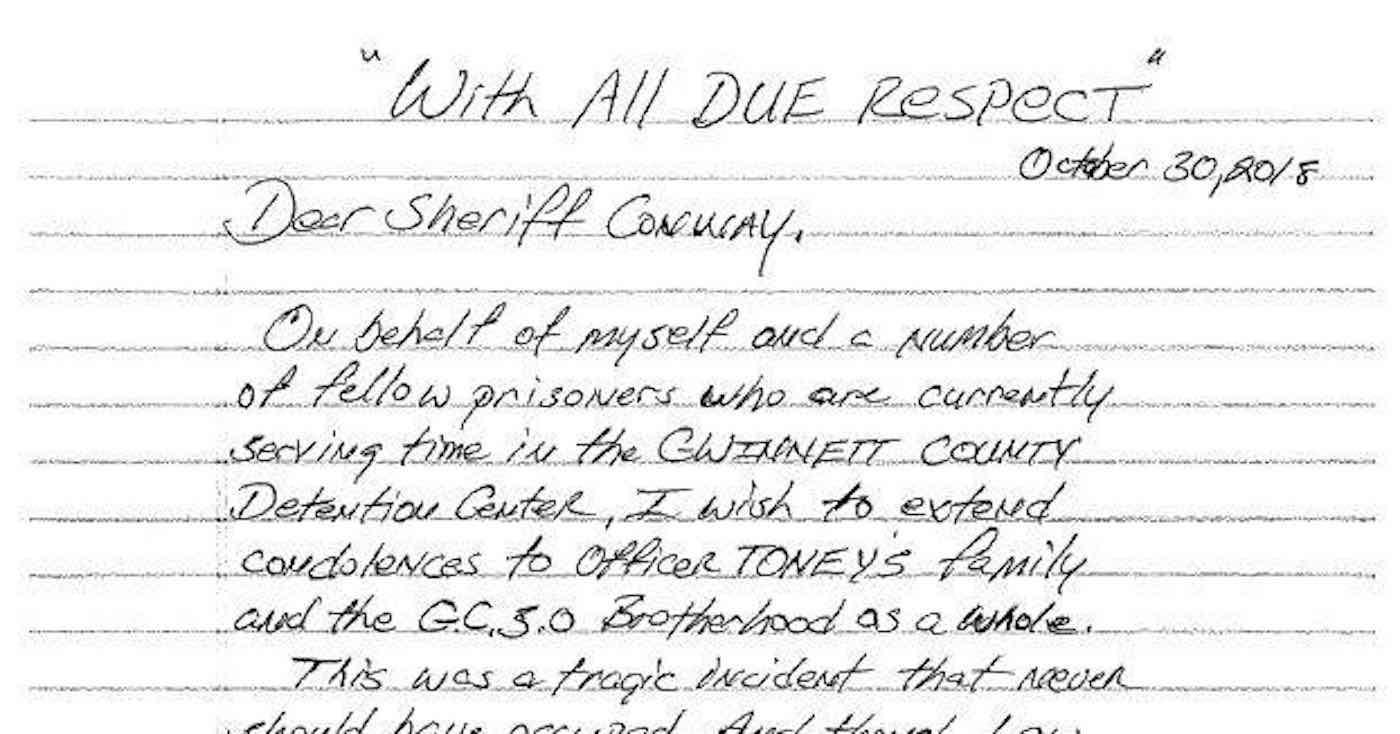 "With All DUE Respect"
October 30, 2018
Dear Sheriff Conway,
On behalf of myself and a number
of fellow prisoners who are currently
serving time in the GWINNETT COUNTY
Detention Center, I wish to extend
condolences to Officer TONEY'S family
and the G.C.S.O Brotherhood as a whole.
This was a tragic incident that never
should have occured. And though I am